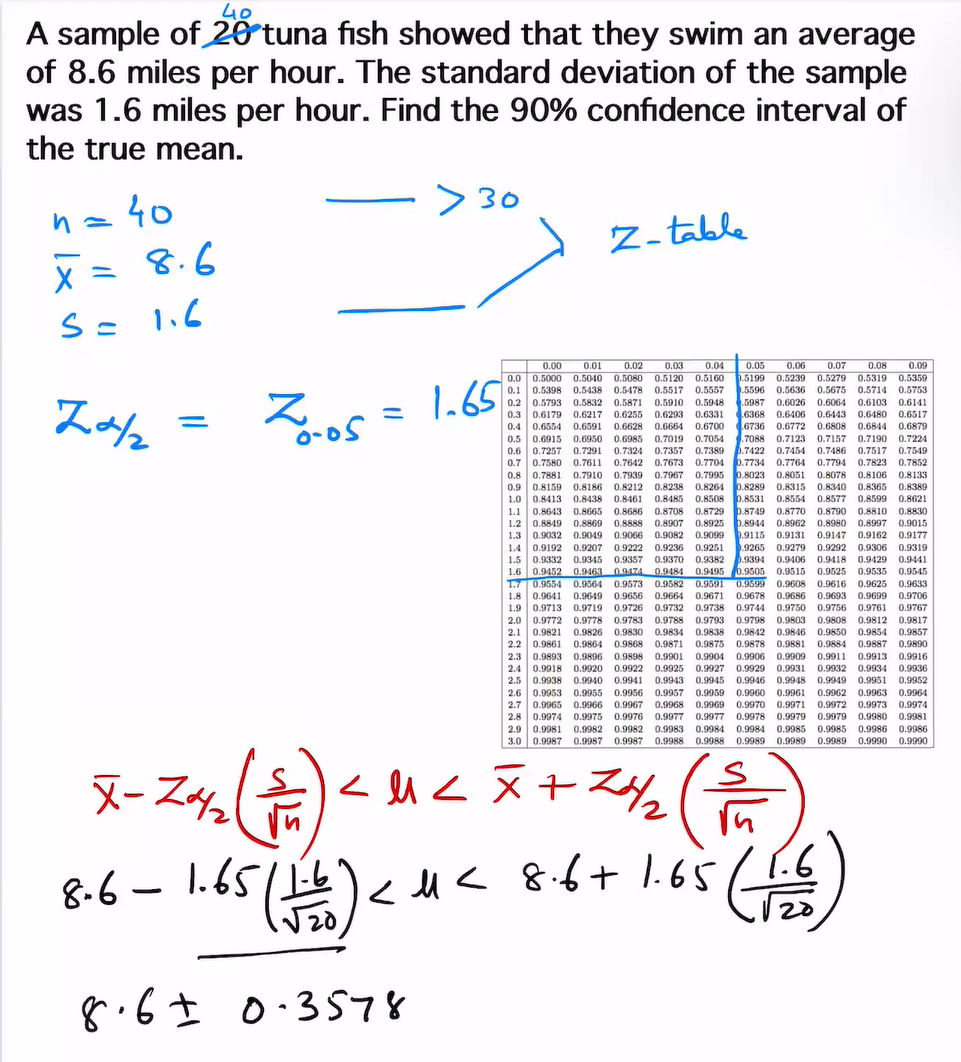 A sample of 20 40 tuna fish showed that they swim an average
of 8.6 miles per hour. The standard deviation of the sample
was 1.6 miles per hour. Find the 90% confidence interval of
the true mean.
n = 40 > 30
x̄ = 8.6 Z-table
s = 1.6
Zα/2 = Z0.05 = 1.65
0.00 0.01 0.02 0.03 0.04 0.05 0.06 0.07 0.08 0.09
0.0 0.5000 0.5040 0.5080 0.5120 0.5160 0.5199 0.5239 0.5279 0.5319 0.5359
0.1 0.5398 0.5438 0.5478 0.5517 0.5557 0.5596 0.5636 0.5675 0.5714 0.5753
0.2 0.5793 0.5832 0.5871 0.5910 0.5948 0.5987 0.6026 0.6064 0.6103 0.6141
0.3 0.6179 0.6217 0.6255 0.6293 0.6331 0.6368 0.6406 0.6443 0.6480 0.6517
0.4 0.6554 0.6591 0.6628 0.6664 0.6700 0.6736 0.6772 0.6808 0.6844 0.6879
0.5 0.6915 0.6950 0.6985 0.7019 0.7054 0.7088 0.7123 0.7157 0.7190 0.7224
0.6 0.7257 0.7291 0.7324 0.7357 0.7389 0.7422 0.7454 0.7486 0.7517 0.7549
0.7 0.7580 0.7611 0.7642 0.7673 0.7704 0.7734 0.7764 0.7794 0.7823 0.7852
0.8 0.7881 0.7910 0.7939 0.7967 0.7995 0.8023 0.8051 0.8078 0.8106 0.8133
0.9 0.8159 0.8186 0.8212 0.8238 0.8264 0.8289 0.8315 0.8340 0.8365 0.8389
1.0 0.8413 0.8438 0.8461 0.8485 0.8508 0.8531 0.8554 0.8577 0.8599 0.8621
1.1 0.8643 0.8665 0.8686 0.8708 0.8729 0.8749 0.8770 0.8790 0.8810 0.8830
1.2 0.8849 0.8869 0.8888 0.8907 0.8925 0.8944 0.8962 0.8980 0.8997 0.9015
1.3 0.9032 0.9049 0.9066 0.9082 0.9099 0.9115 0.9131 0.9147 0.9162 0.9177
1.4 0.9192 0.9207 0.9222 0.9236 0.9251 0.9265 0.9279 0.9292 0.9306 0.9319
1.5 0.9332 0.9345 0.9357 0.9370 0.9382 0.9394 0.9406 0.9418 0.9429 0.9441
1.6 0.9452 0.9463 0.9474 0.9484 0.9495 0.9505 0.9515 0.9525 0.9535 0.9545
1.7 0.9554 0.9564 0.9573 0.9582 0.9591 0.9599 0.9608 0.9616 0.9625 0.9633
1.8 0.9641 0.9649 0.9656 0.9664 0.9671 0.9678 0.9686 0.9693 0.9699 0.9706
1.9 0.9713 0.9719 0.9726 0.9732 0.9738 0.9744 0.9750 0.9756 0.9761 0.9767
2.0 0.9772 0.9778 0.9783 0.9788 0.9793 0.9798 0.9803 0.9808 0.9812 0.9817
2.1 0.9821 0.9826 0.9830 0.9834 0.9838 0.9842 0.9846 0.9850 0.9854 0.9857
2.2 0.9861 0.9864 0.9868 0.9871 0.9875 0.9878 0.9881 0.9884 0.9887 0.9890
2.3 0.9893 0.9896 0.9898 0.9901 0.9904 0.9906 0.9909 0.9911 0.9913 0.9916
2.4 0.9918 0.9920 0.9922 0.9925 0.9927 0.9929 0.9931 0.9932 0.9934 0.9936
2.5 0.9938 0.9940 0.9941 0.9943 0.9945 0.9946 0.9948 0.9949 0.9951 0.9952
2.6 0.9953 0.9955 0.9956 0.9957 0.9959 0.9960 0.9961 0.9962 0.9963 0.9964
2.7 0.9965 0.9966 0.9967 0.9968 0.9969 0.9970 0.9971 0.9972 0.9973 0.9974
2.8 0.9974 0.9975 0.9976 0.9977 0.9977 0.9978 0.9979 0.9979 0.9980 0.9981
2.9 0.9981 0.9982 0.9982 0.9983 0.9984 0.9984 0.9985 0.9985 0.9986 0.9986
3.0 0.9987 0.9987 0.9987 0.9988 0.9988 0.9989 0.9989 0.9989 0.9990 0.9990
x̄ - Zα/2 (s/√n) < μ < x̄ + Zα/2 (s/√n)
8.6 - 1.65 (1.6/√20) < μ < 8.6 + 1.65 (1.6/√20)
8.6 ± 0.3578